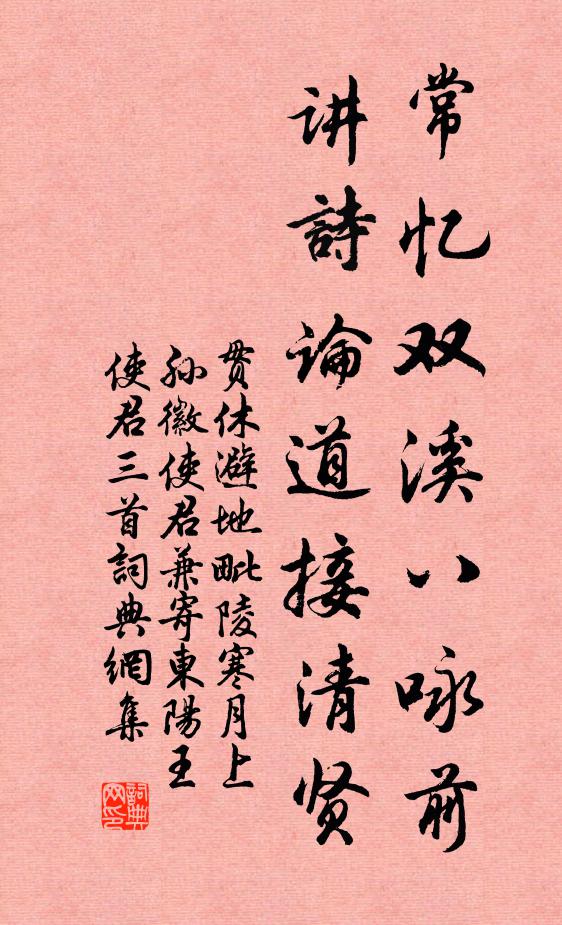 常忆双溪八咏前
讲詩论道接清贤
贯休避地毗陵寒月上
孙徽使君兼寄東陽王
使君三首詞典網集
詞典
网印